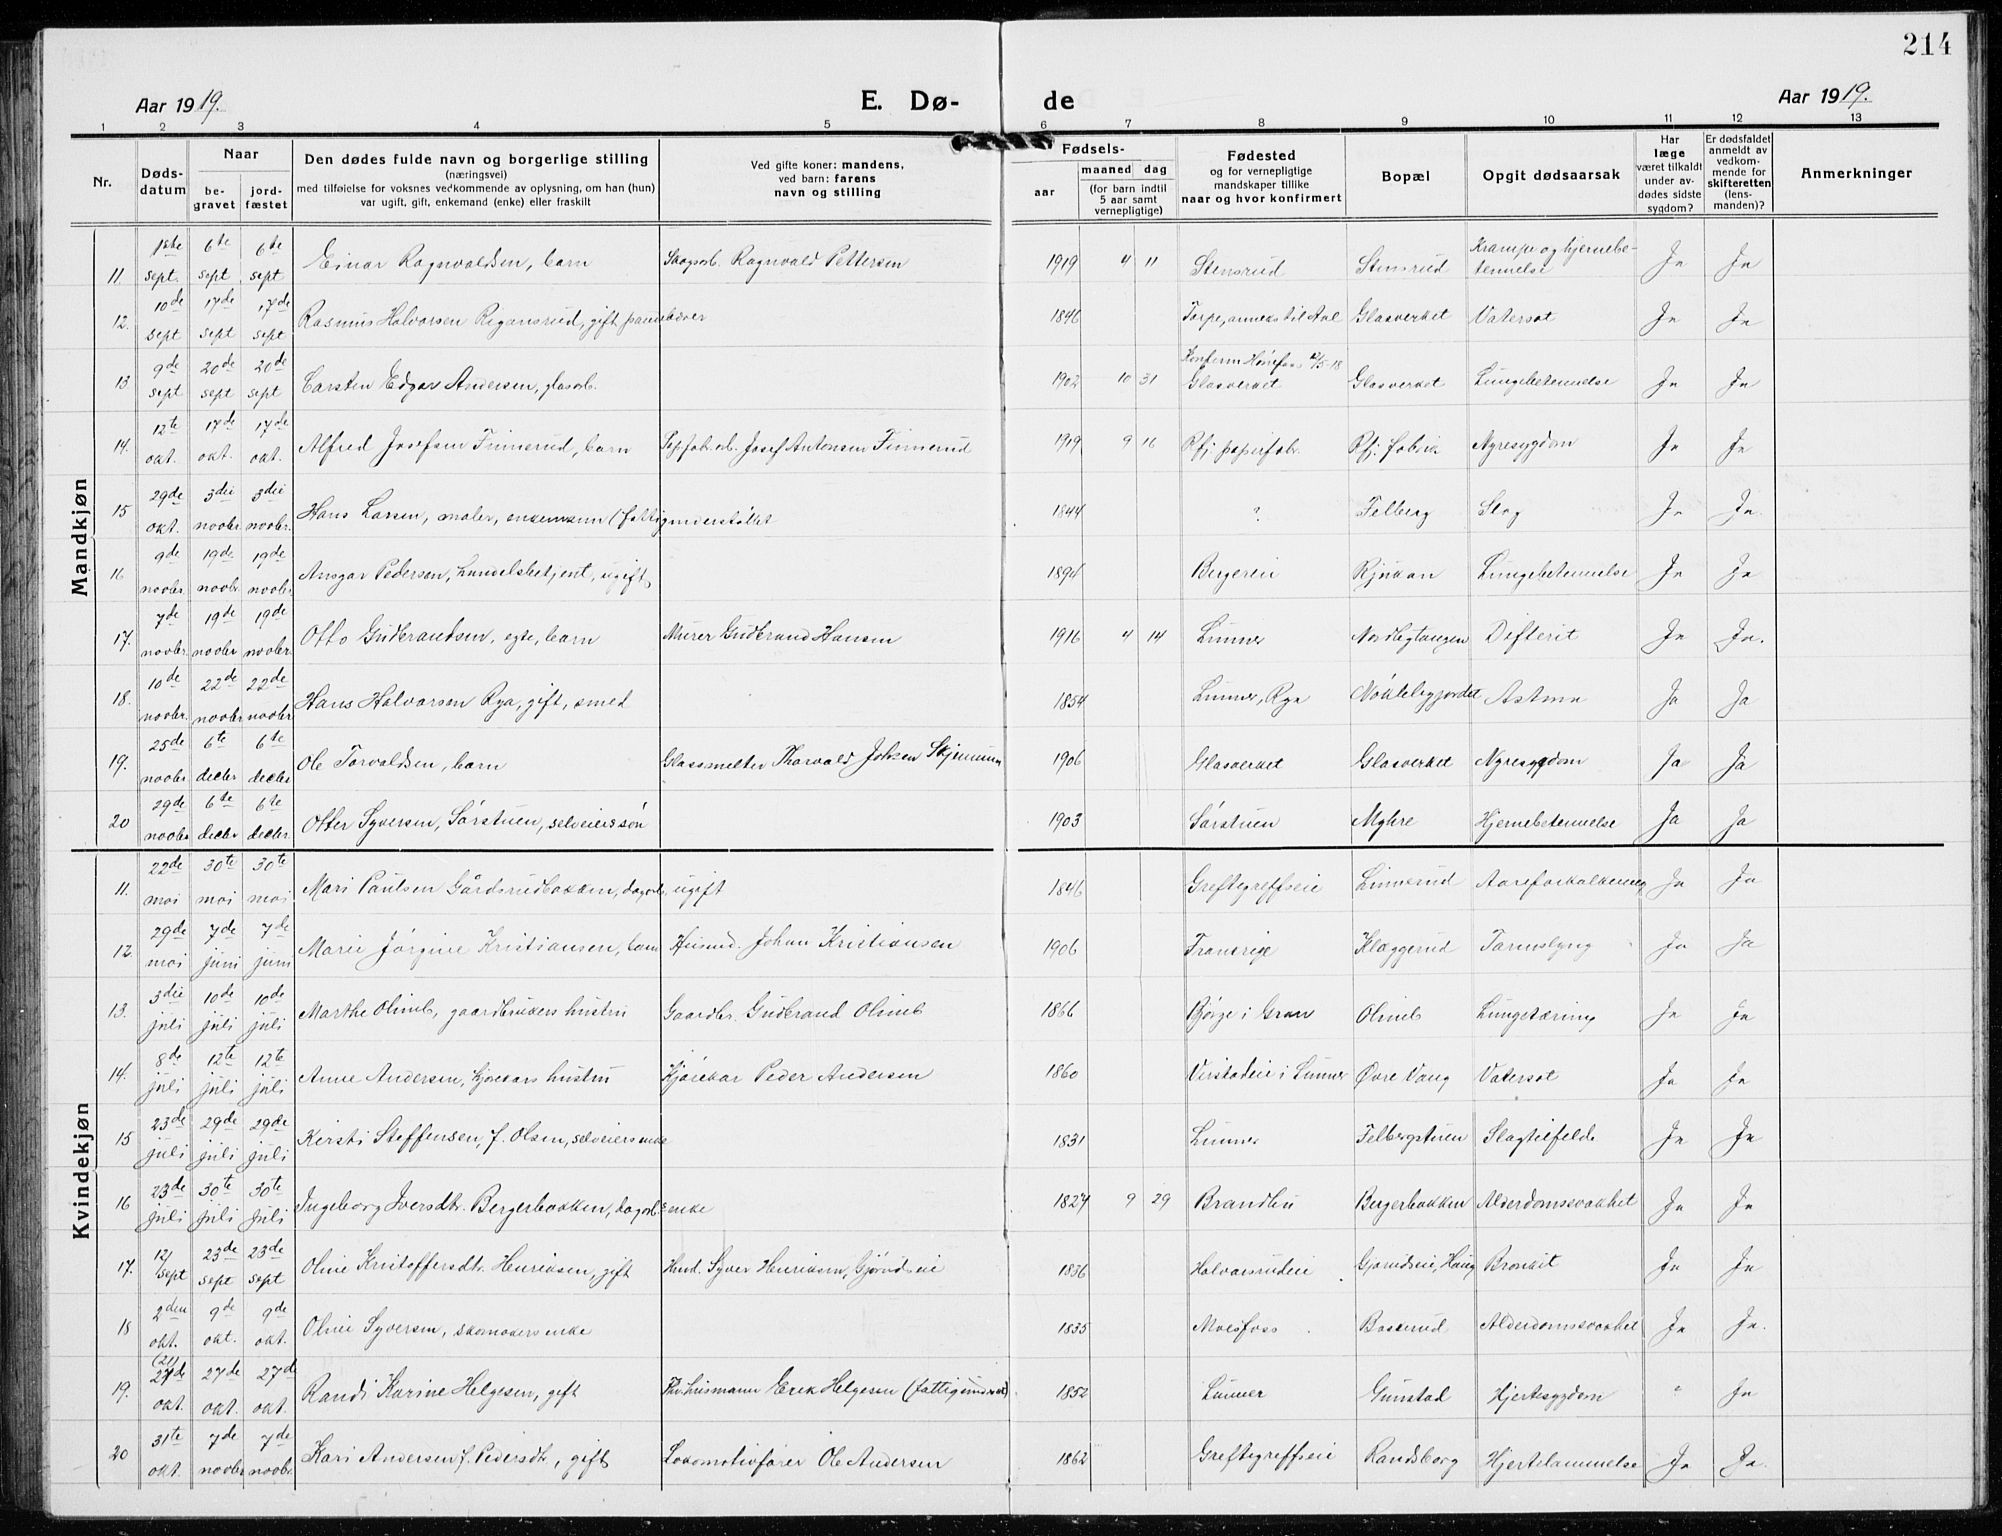 214
Aar 1919.
E. Dø-
de
Aar 1919.
1 2 3 4 5 6 7 8 9 10 11 12 13
Nr.
Døds-
datum
Naar
be-
gravet
jord-
fæstet
Den dødes fulde navn og borgerlige stilling
(næringsvei)
med tilføielse for voksnes vedkommende av oplysning, om han (hun)
var ugift, gift, enkemand (enke) eller fraskilt
Ved gifte koner: mandens,
ved barn: farens
navn og stilling
Fødsels-
aar
maaned dag
(for barn indtil
5 aar samt
vernepligtige)
Fødested
og for vernepligtige
mandskaper tillike
naar og hvor konfirmert
Bopæl
Opgit dødsaarsak
Har
læge
været tilkaldt
under av-
dødes sidste
sygdom?
Er dødsfaldet
anmeldt av
vedkom-
mende for
skifteretten
(lens-
manden)?
Anmerkninger
Mandkjøn
11. 1ste sept. 6te sept 6te sept Einar Ragnvaldsen, barn Skogsarb. Ragnvald Pettersen 1919 4 11 Stensrud Stensrud Krampe og hjernebe-
tennelse Ja Ja
12. 10de sept 17de sept 17de sept Rasmus Halvorsen gift 1846 Torpe, anneks til Aal Glasverket Vatersot Ja Ja
13 9de sept 20de sept 20de sept Carsten Edgar Andersen, glasarb. 1902 10 31 Konfirm Hønefoss 12/5-18
Glasverket Glasverket Lungebetennelse Ja Ja
14. 12te okt. 17de okt. 17de okt. Alfred Josefsen Finnerud, barn Papfabarb. Josef Antonsen Finnerud 1919 9 16 Rfj. papirfab. Rfj. fabrik Nyresygdom Ja Ja
15 29de okt. 3die novbr. 3die novbr. Hans Larsen, maler, enkemann (fattigunderstøttet 1844 ? Felberg Slag Ja Ja.
16 9de novbr. 19de novbr. 19de novbr. Ansgar Pedersen, handelsbetjent, ugift, 1894 Bergerei Rjukan Lungebetennelse Ja Ja
17. 7de novbr. 19de novbr. 19de novbr. Otto Gudbrandsen, egte, barn Murer Gudbrand Hansen 1916 4 14 Lunner Nordlegtangen Difterit Ja Ja.
18. 10de novbr. 22de novbr. 22de novbr. Hans Halvorsen Rya, gift, smed 1854 Lunner, Rya Nøklebygjordet Astma Ja Ja
19. 25de novbr. 6te decbr 6te decbr Ole Torvaldsen, barn Glassmelter Thorvald Johsen Skjennum 1906 Glasverket Glasverket Nyresygdom Ja Ja
20 29de novbr 6te decbr 6te decbr. Otter Syversen, Sørstuen, selveiers søn 1903 Sørstuen Myhre Hjernebetennelse Ja Ja
Kvindekjøn
11. 22de mai 30te mai 30te mai Mari Paulsen Gårdsrudbakken, dagarb, ugift 1846 Greftegreffseie Linnerud Aareforkalkning Ja Ja
12 29de mai 7de juni 7de juni Marie Jørgine Kristiansen, barn Husmd. Johan Kristiansen 1906 Klæggerud Tarmslyng Ja Ja
13. 3die juli 10de juli 10de juli Marthe Olimb, gaardbrukers hustru Gaardbr. Gudbrand Olimb 1866 Bjørge i Gran Olimb Lungetæring Ja Ja
14. 8de juli 12te juli 12te juli Anne Andersen, kjørekars hustru Kjørekar Peder Andersen 1860 Virstadeie i Lunner Øvre Vang Vatersot Ja Ja
15 23de juli 29de juli 29de juli Kersti Steffensen, f. Olsen, selveiers enke 1831 Lunner Felbergstuen Slagtilfelde Ja Ja
16 23de juli 30te juli 30te juli Ingeborg Iversdtr. Bergerbakken, dagarb.s enke 1827 9 29 Brandbu Bergerbakken Alderdomssvakhet Ja Ja
17. 12/sept 23de sept 23de sept Oline Kristoffersdtr. Henriksen, gift Hmd. Syver Henriksen, Gjørudseie 1836 Halvorsrudeie Gjørudseie, Haug Bronkit Ja Ja
18 2den okt. 9de okt. 9de okt. Oline Syversen, skomakers enke 1835 Moesfoss Bakerud Alderdomssvakhet Ja Ja.
19. (21) 27de okt. 27de okt. 27de okt. Randi Karine Helgesen, gift Fhv. husmann Erik Helgesen (fattigunderst.) 1852 Lunner Gunstad Hjertesygdom " Ja
20 31te okt. 7de novbr. 7de novbr. Kari Andersen f. Pedersdtr, gift Lokomotivfører Ole Andersen 1862 Greftegreffseie Randsborg Hjertelammelse Ja Ja.